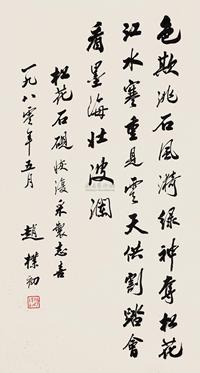 色欺洮石風漪綠神奪松花
江水寒重見雲天供割踏會
看墨海壯波瀾
松花石硯恢復采製志喜
一九八零年五月
趙樸初